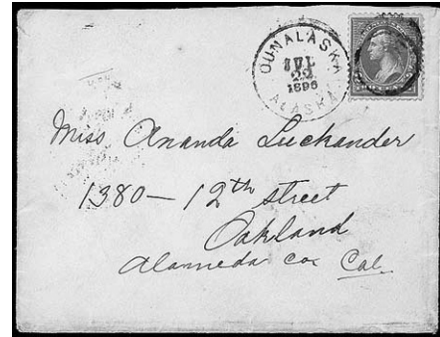 OUNALASKA
JUL
22
1896
ALASKA
Miss Ananda Luckander
1380 – 12th street
Oakland
Alameda Co Cal.